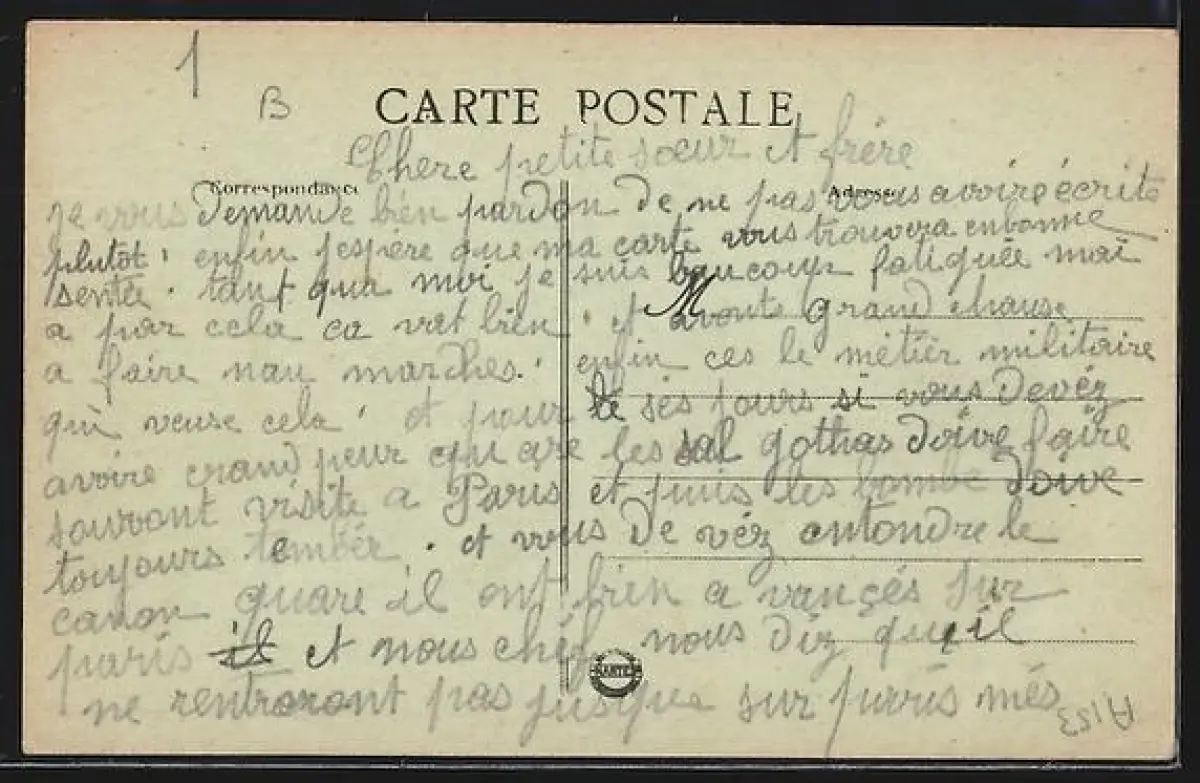 1
B
CARTE POSTALE
Chere petite sœur et frère
Correspondance
Adresse
je vous demande bien pardon de ne pas vous avoire écrite
plutôt ; enfin jespère que ma carte vous trouvera en bonne
sentée . tant qua moi je suis baucoup fatiguée mai
M
a par cela ca vat bien . et avont grand chause
a faire nau marches . enfin ces le métier militaire
qui veuse cela . et pour le ses jours si vous devéz
avoire crand peur les sal gothas doive faire
souvant visite a Paris et puis les bombe doive
toujours tembér . et vous de véz entondre le
canon quare il ont frien a vançés sur
paris il et nous chéf nous diz qu'il
ne rentroront pas jusque sur paris més
NANTES
A153